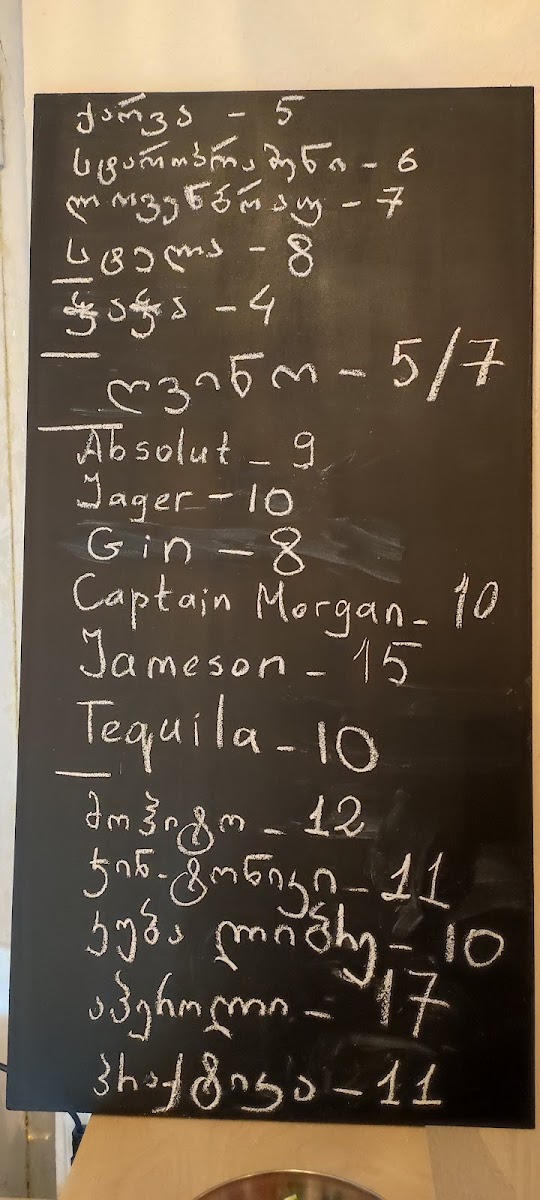 ქართვა - 5
სტაროპრამენი - 6
ლოვენბრაუ - 7
სტელა - 8
ჭაჭა - 4
ღვინო - 5/7
Absolut - 9
Jager - 10
Gin - 8
Captain Morgan - 10
Jameson - 15
Tequila - 10
მოჰიტო - 12
ჯინ-ტონიკი - 11
კუბა ლიბრე - 10
აპეროლი - 17
- 11